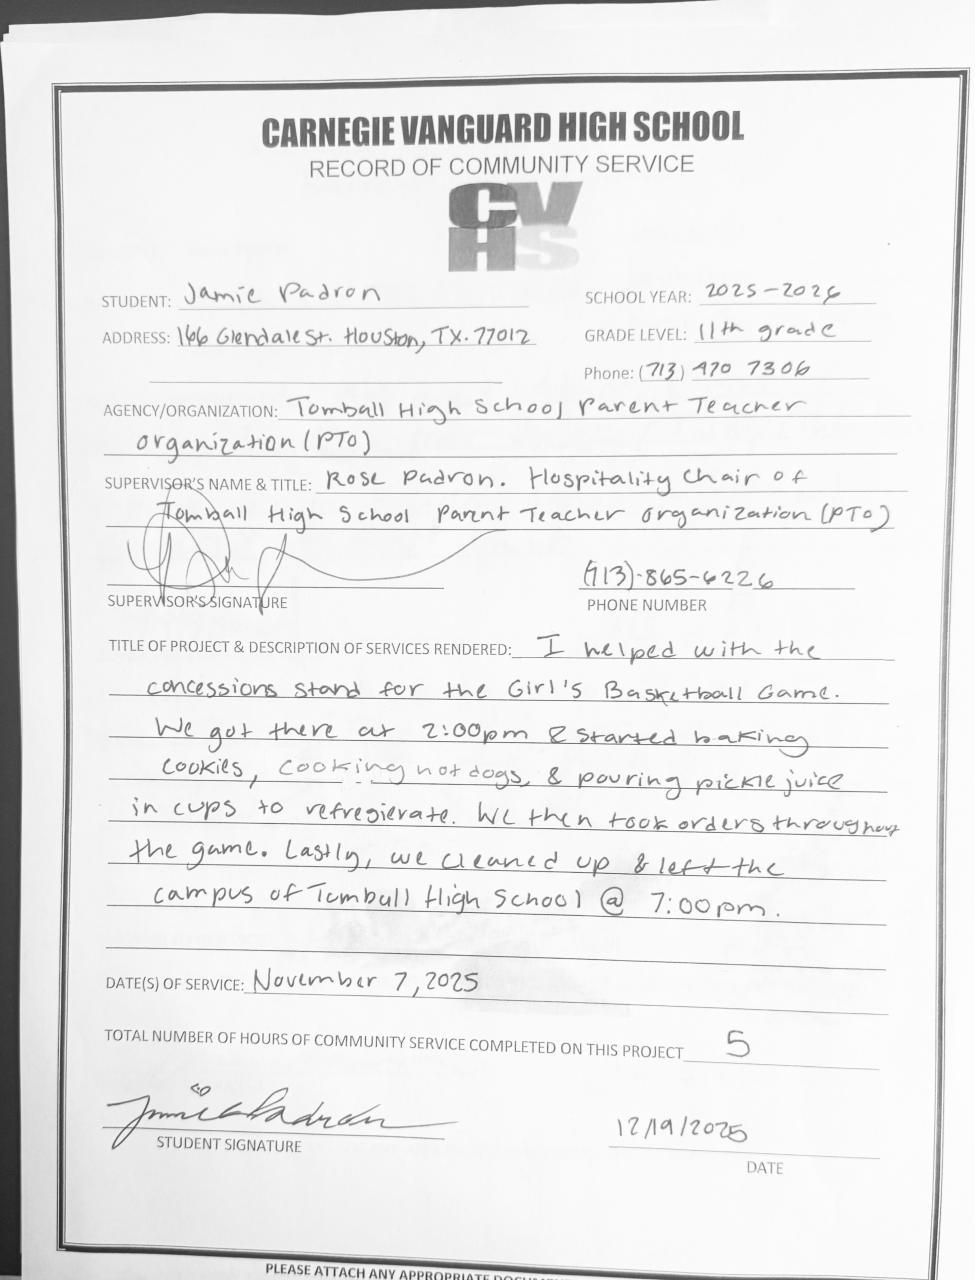 CARNEGIE VANGUARD HIGH SCHOOL
RECORD OF COMMUNITY SERVICE
CV
HS
STUDENT: Jamie Padron
SCHOOL YEAR: 2025-2026
ADDRESS: 166 Glendale St. Houston, TX. 77012
GRADE LEVEL: 11th grade
Phone: (713) 470 7306
AGENCY/ORGANIZATION: Tomball High School Parent Teacher
organization (PTO)
SUPERVISOR'S NAME & TITLE: Rose Padron. Hospitality Chair of
Tomball High School Parent Teacher organization (PTO)
(713)-865-6226
SUPERVISOR'S SIGNATURE
PHONE NUMBER
TITLE OF PROJECT & DESCRIPTION OF SERVICES RENDERED: I helped with the
concessions stand for the Girl's Basketball Game.
We got there at 2:00pm & started baking
cookies, cooking hot dogs, & pouring pickle juice
in cups to refregierate. We then took orders throughout
the game. Lastly, we cleaned up & left the
campus of Tomball High School @ 7:00pm.
DATE(S) OF SERVICE: November 7, 2025
TOTAL NUMBER OF HOURS OF COMMUNITY SERVICE COMPLETED ON THIS PROJECT 5
Jamie Padron
12/19/2025
STUDENT SIGNATURE
DATE
PLEASE ATTACH ANY APPROPRIATE